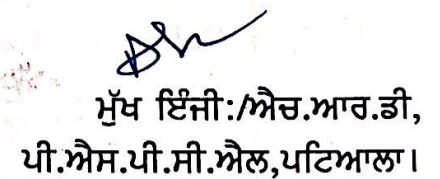 ਮੁੱਖ ਇੰਜੀ:/ਐਚ.ਆਰ.ਡੀ,
ਪੀ.ਐਸ.ਪੀ.ਸੀ.ਐਲ,ਪਟਿਆਲਾ।